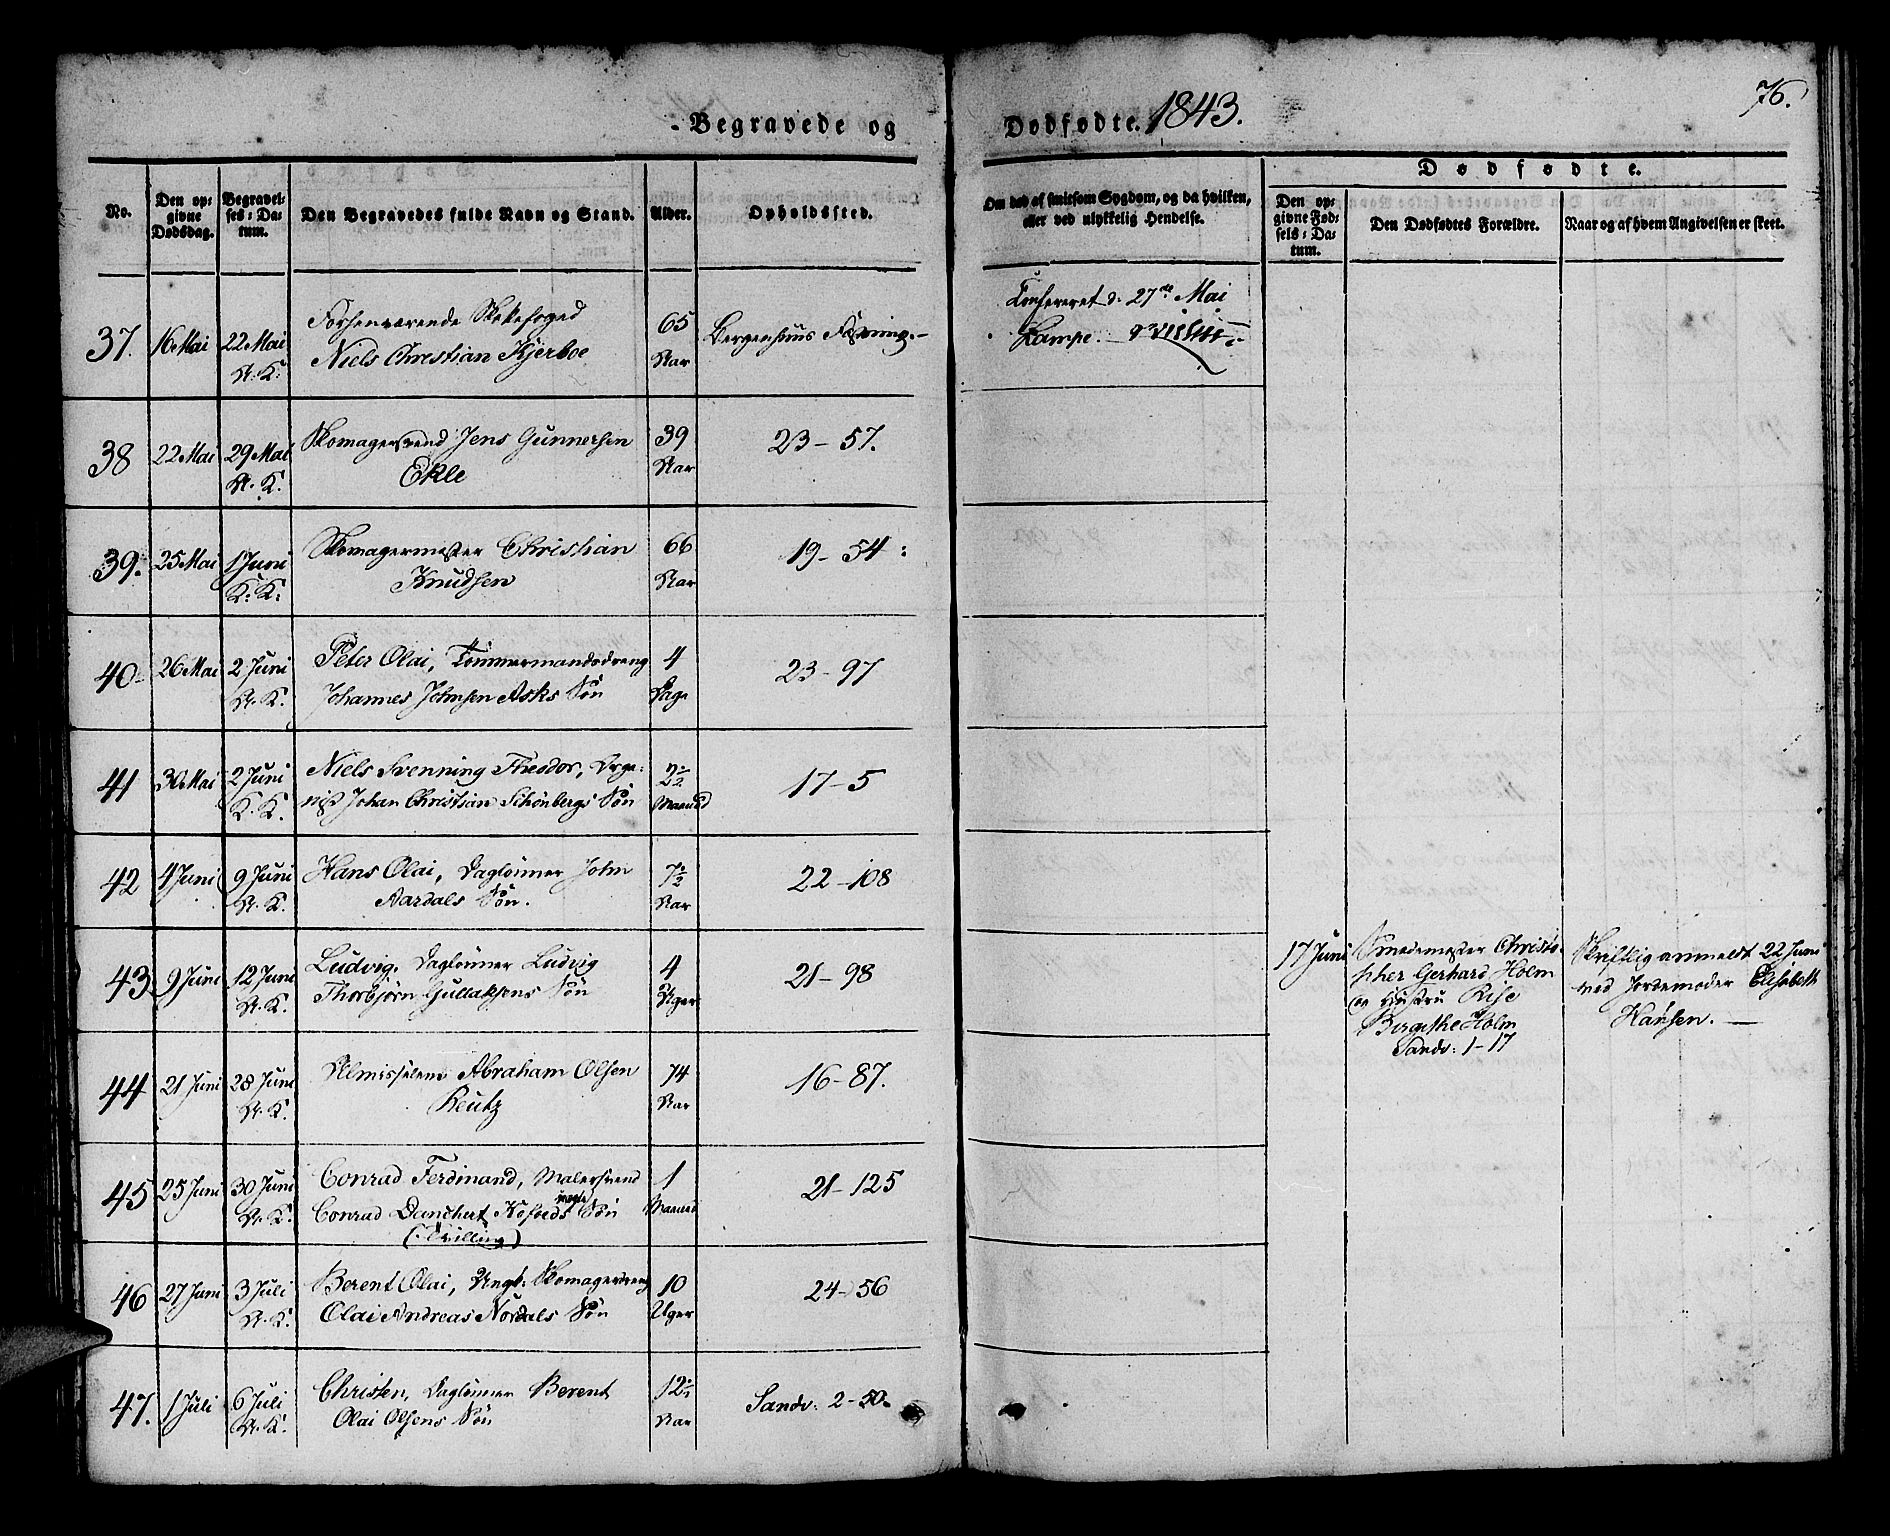 76.
Begravede og Dødfødte. 1843.
No.
Den opgivne Dødsdag.
Begravelses-Datum.
Den Begravedes fulde Navn og Stand.
Alder.
Opholdssted.
Om død af smitsom Sygdom, og da hvilken, eller ved ulykkelig Hendelse.
Dødfødte.
Den opgivne Fødsels-Datum.
Den Dødfødtes Forældre.
Naar og af hvem Angivelsen er skeet.
37. 16 Mai 22 Mai Forhenværende 65 Bergenhuus Fæstning.
A. K: Niels Christian Kjerboe Aar
Confereret d. 27de Mai
Lampe.
38 22 Mai 29 Mai Skomagersvend Jens Gunnersen 39 23-57.
A. K. Ekle Aar
39. 25 Mai 1 Juni Skomagermester Christian 66 19-54:
K: K: Knudsen Aar
40 26 Mai 2 Juni Peter Olai, Tømmermandsdreng 4 23-97
A. K. Johannes Johnsen Asks Søn Dage
41 30 Mai 2 Juni Niels Svenning Theodor, Orga- 2½ 17-5
K. K. nist Johan Christian Schönbergs Søn Maaned
42 4 Juni 9 Juni Hans Olai, Daglønner John 7½ 22-108
A. K. Aardals Søn. Aar
43 9 Juni 12 Juni Ludvig, Daglønner Ludvig 4 21-98
A. K. Thorbjørn Gullaksens Søn Uger
17 Juni Smedemester Christo-
pher Gerhard Holm
og Hustru Rise
Birgithe Holm
Sandv: 1-17
Skriftlig anmeldt 22 Juni
ved Jordemoder Elisabeth
Hansen.
44 21 Juni 28 Juni Almisselem Abraham Olsen 74 16-87.
A. K. Reutz Aar
45 25 Juni 30 Juni Conrad Ferdinand, Malersvend 1 21-125
A. K. Conrad Danchert Kofoeds uægte Søn Maaned
(Tvilling)
46 27 Juni 3 Juli Berent Olai, Ungk. Skomagersvend 10 24-56
A. K. Olai Andreas Nordals Søn Uger
47. 1 Juli 6 Juli Christen, Daglønner Berent 12½ Sandv: 2-50.
A. K. Olai Olsens Søn Aar